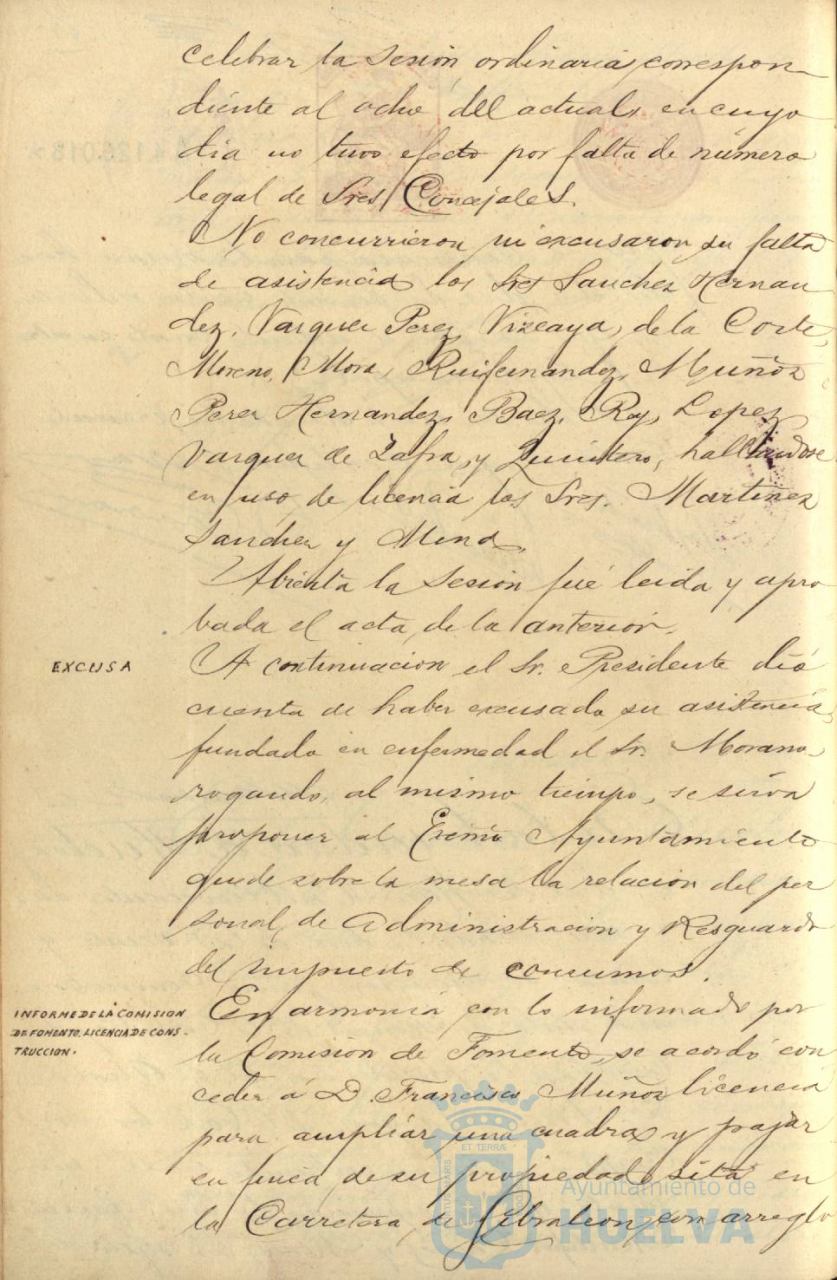 celebrar la Sesión ordinaria, correspon
diente al ocho del actual, en cuyo
día no tuvo efecto por falta de número
legal de Sres Concejales.
No concurrieron ni excusaron su falta
de asistencia los Sres Sanchez Hernan
dez, Vazquez Perez, Vizcaya, de la Corte,
Moreno, Mora, Ruifernandez, Muñoz
Perez Hernandez, Baez, Rey, Lopez,
Vazquez de Zafra, y Quintero, hallandose
en uso de licencia los Sres. Martinez
Sanchez y Mena.
Abierta la Sesión fué leida y apro
bada el acta de la anterior.
EXCUSA
A continuacion el Sr. Presidente dió
cuenta de haber excusado su asistencia,
fundado en enfermedad el Sr. Morano,
rogando, al mismo tiempo, se sirva
proponer al Excmo Ayuntamiento
quede sobre la mesa la relacion del per
sonal de Administracion y Resguardo
del impuesto de consumos.
INFORME DE LA COMISION
DE FOMENTO. LICENCIA DE CONS-
TRUCCION.
En armonia con lo informado por
la Comision de Fomento, se acordó con
ceder á D. Francisco Muñoz licencia
para ampliar una cuadra y pajar
en finca de su propiedad sita en
la Carretera de Gibraleon, con arreglo
Ayuntamiento de
HUELVA